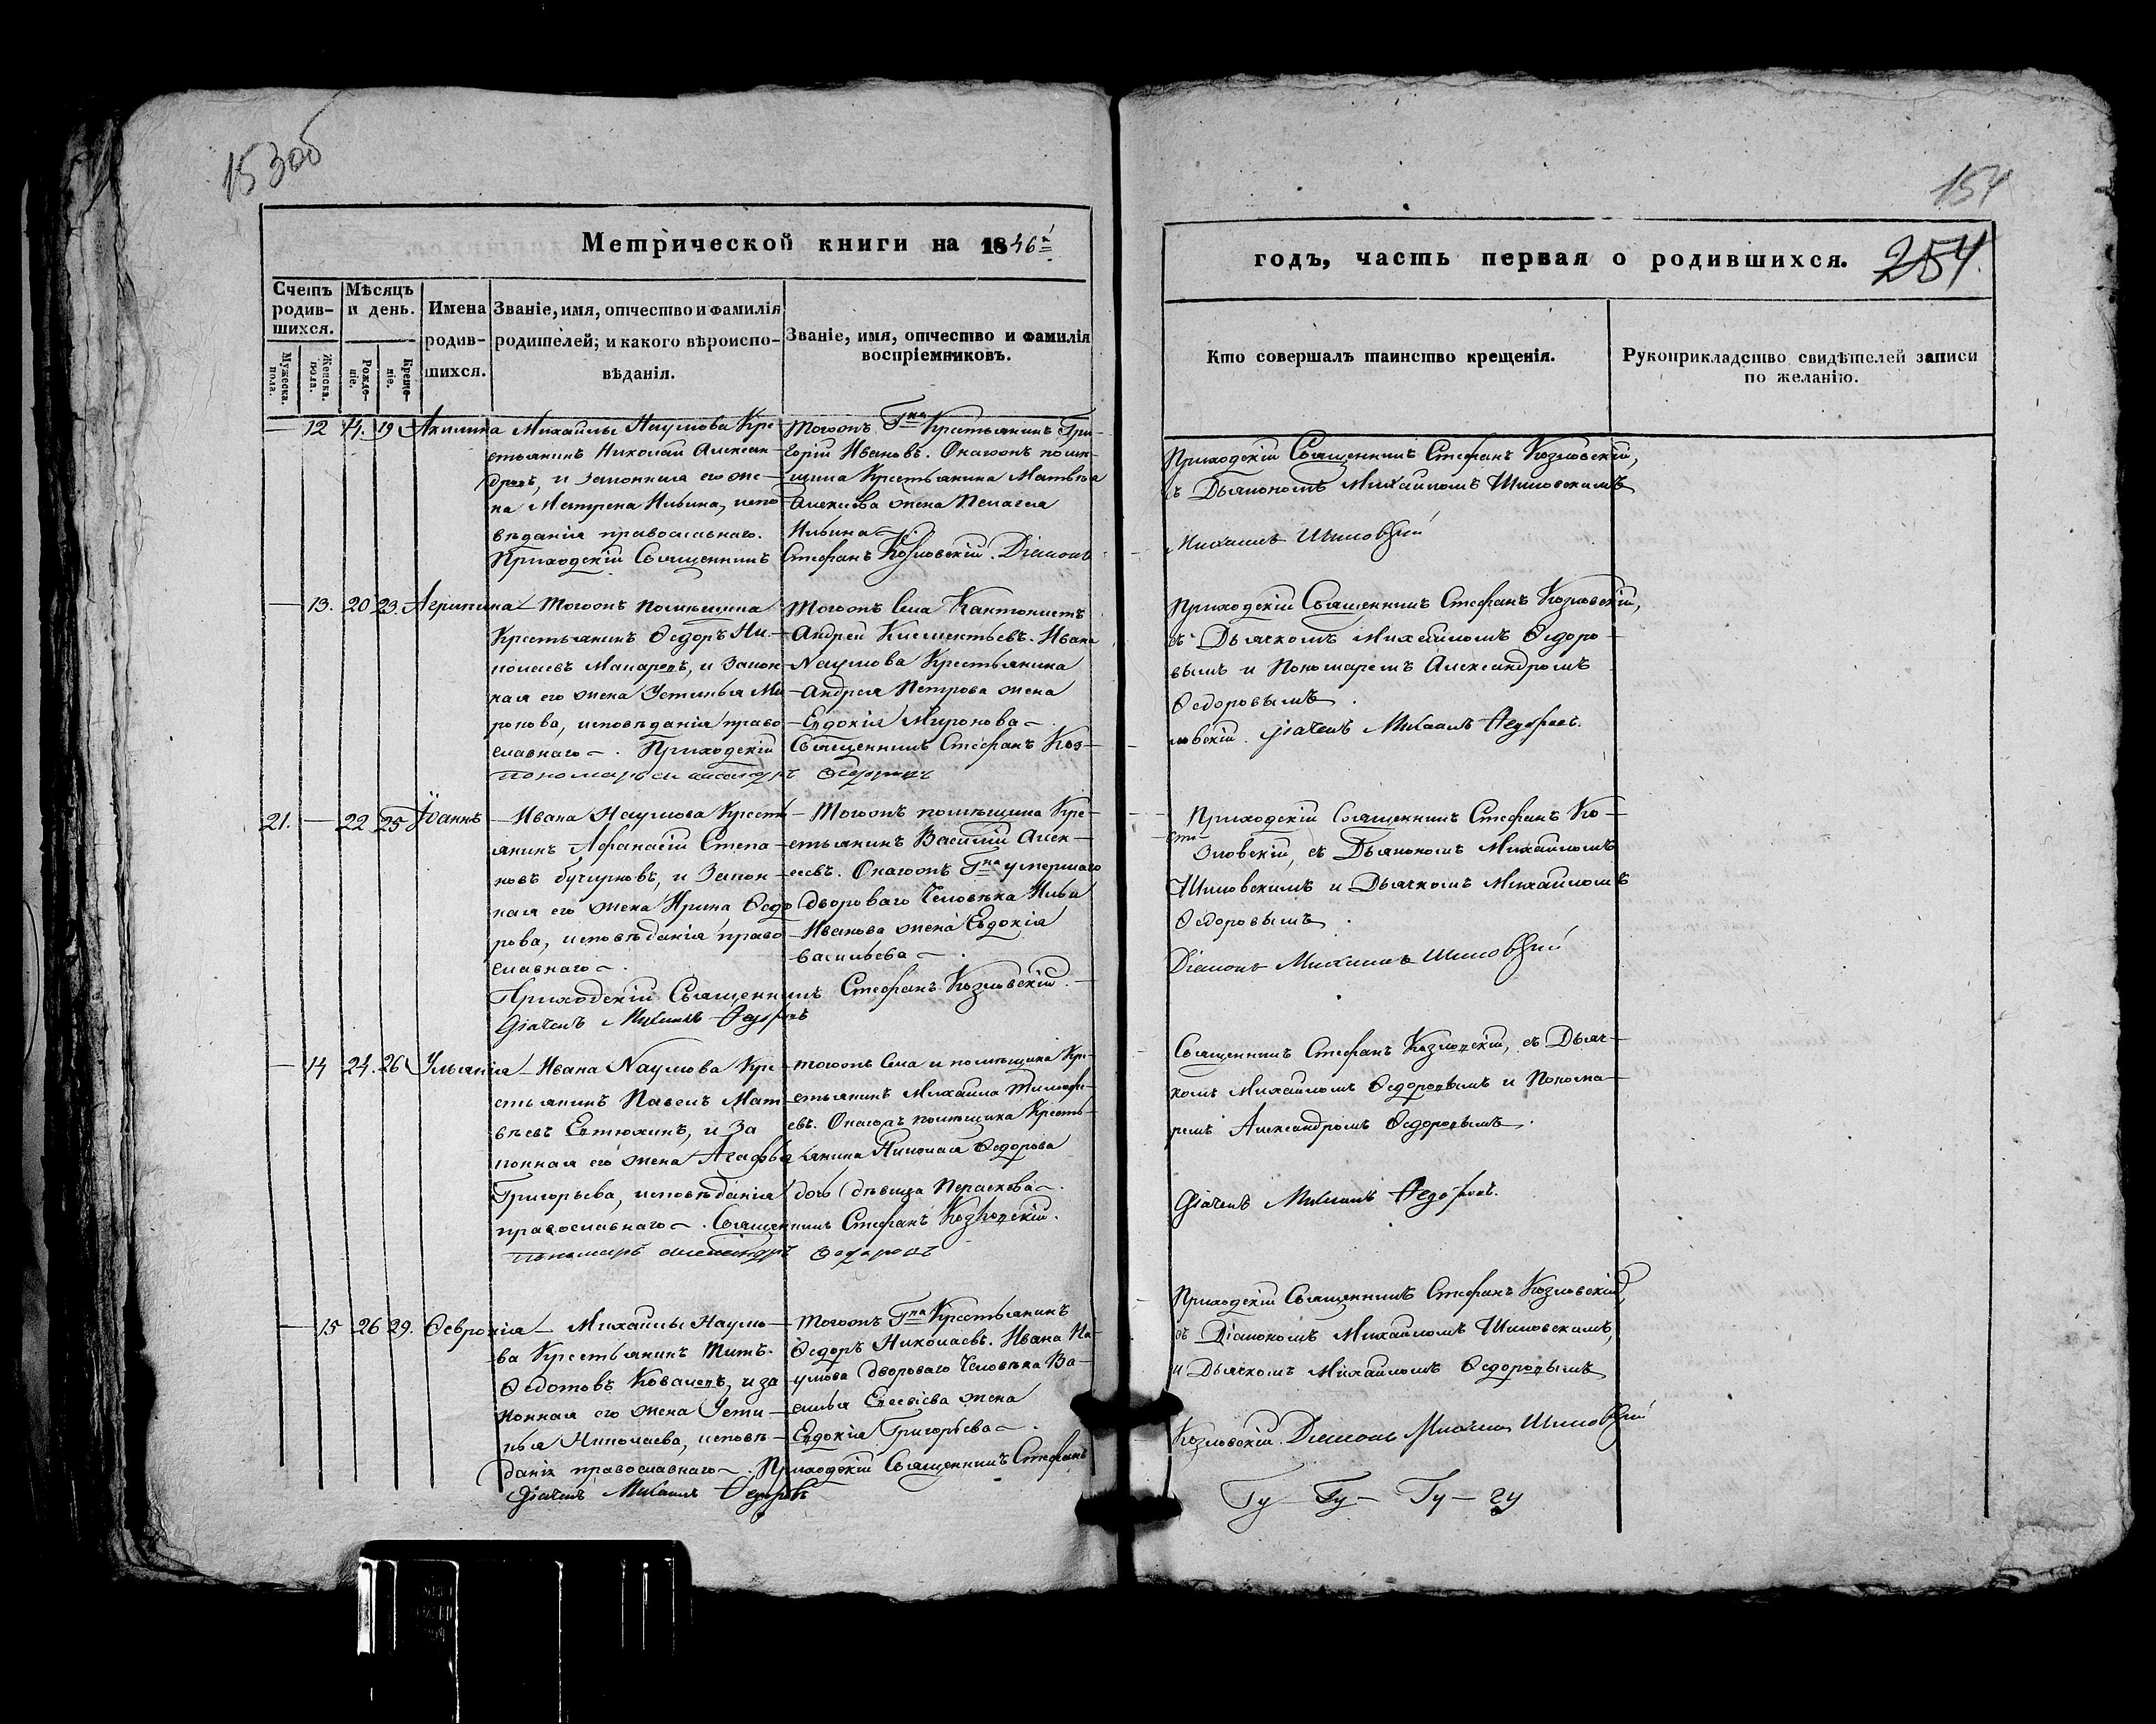 153об
154
Метрической книги на 1846й
годъ, часть первая о родившихся.
254.
Счетъ родив-шихся.
Мужеска. пола.
Женска. пола.
Мѣсяцъ и день.
Рожде-ніе.
Креще-ніе.
Имена родив-шихся.
Званіе, имя, отчество и фамилія
родителей; и какого вѣроиспо-
вѣданія.
Званіе, имя, отчество и фамилія
воспріемниковъ.
Кто совершалъ таинство крещенія.
Рукоприкладство свидѣтелей записи
по желанію.
— 12 19 Акилина
Михаилы Наумова Кре-
стьянинъ Николай Алексан-
и законная его же-
на Матрена Ильина, испо-
вѣданія православнаго.
Тогожъ Гна Крестьянинъ Гри-
горій Ивановъ. Онагожъ помѣ-
щика Крестьянина Матвѣя
Алексѣева жена Пелагея
Ильина
Приходскій Священникъ Стефанъ Козловскій. Діаконъ
Приходскій Священникъ Стефанъ Козловскій,
съ Дьякономъ Михаиломъ Шиловскимъ
Михаилъ Шиловскій
— 13. 20 23. Агрипина
Тогожъ помѣщика
Крестьянинъ Ѳедоръ Ни-
колаевъ и Закон-
ная его жена Устинья Ми-
ронова, исповѣданія право-
славнаго. Приходскій Священникъ Стефанъ Коз-
пономарь Александръ Ѳедоровъ
Тогожъ Села Кантонистъ
Андрей Климентьевъ. Ивана
Наумова Крестьянина
Андрея Петрова жена
Евдокія Миронова
Приходскій Священникъ Стефанъ Козловскій,
съ Дьячкомъ Михаиломъ Ѳедоро-
вымъ и Пономаремъ Александромъ
Ѳедоровымъ.
ловскій. Діачекъ Михаилъ Ѳедоровъ.
21. — 22 25 Іоаннъ
Ивана Наумова Крест-
янинъ Афанасій Степа-
новъ и Закон-
ная его жена Ирина Ѳедо-
рова, исповѣданія право-
славнаго.
Тогожъ помѣщика Кре-
стьянинъ Василій Алек-
сеевъ. Онагожъ Гна умершаго
двороваго человѣка Ильи
Иванова жена Евдокія
Васильева.
Приходскій Священникъ Стефанъ Козловскій.
Діачекъ Михаилъ Ѳедоровъ
Приходскій Священникъ Стефанъ Ко-
зловскій, съ Дьякономъ Михаиломъ
Шиловскимъ и Дьячкомъ Михаиломъ
Ѳедоровымъ.
Діаконъ Михаилъ Шиловскій
— 14 24. 26 Ульянія
Ивана Наумова Кре-
стьянинъ Павелъ Мат-
вѣевъ Евтюхинъ, и За-
конная его жена Агафья
Григорьева, исповѣданія
православнаго. Священникъ Стефанъ Козловскій.
пономарь Александръ Ѳедоровъ
Тогожъ Села и помѣщика Кре-
стьянинъ Михаила Тимофе-
евъ. Онагожъ помѣщика Кресть-
янина Николая Ѳедорова
дочь дѣвица Параскева.
Священникъ Стефанъ Козловскій, съ Дьяч-
комъ Михаиломъ Ѳедоровымъ и Понома-
ремъ Александромъ Ѳедоровымъ.
Діачекъ Михаилъ Ѳедоровъ.
— 15 26 29. Ѳевронія
Михаилы Наумо-
ва Крестьянинъ Титъ
Ѳедотовъ Ковалевъ, и за-
конная его жена Усти-
нья Николаева, исповѣ-
данія православнаго. Приходскій Священникъ Стефанъ
Діачекъ Михаилъ Ѳедоровъ
Тогожъ Гна Крестьянинъ
Ѳедоръ Николаевъ. Ивана На-
умова двороваго человѣка Ва-
силья Евсѣева жена
Евдокія Григорьева.
Приходскій Священникъ Стефанъ Козловскій,
съ Діакономъ Михаиломъ Шиловскимъ,
и Дьячкомъ Михаиломъ Ѳедоровымъ
Козловскій. Діаконъ Михаилъ Шиловскій
Гу — Гу — Гу — гу